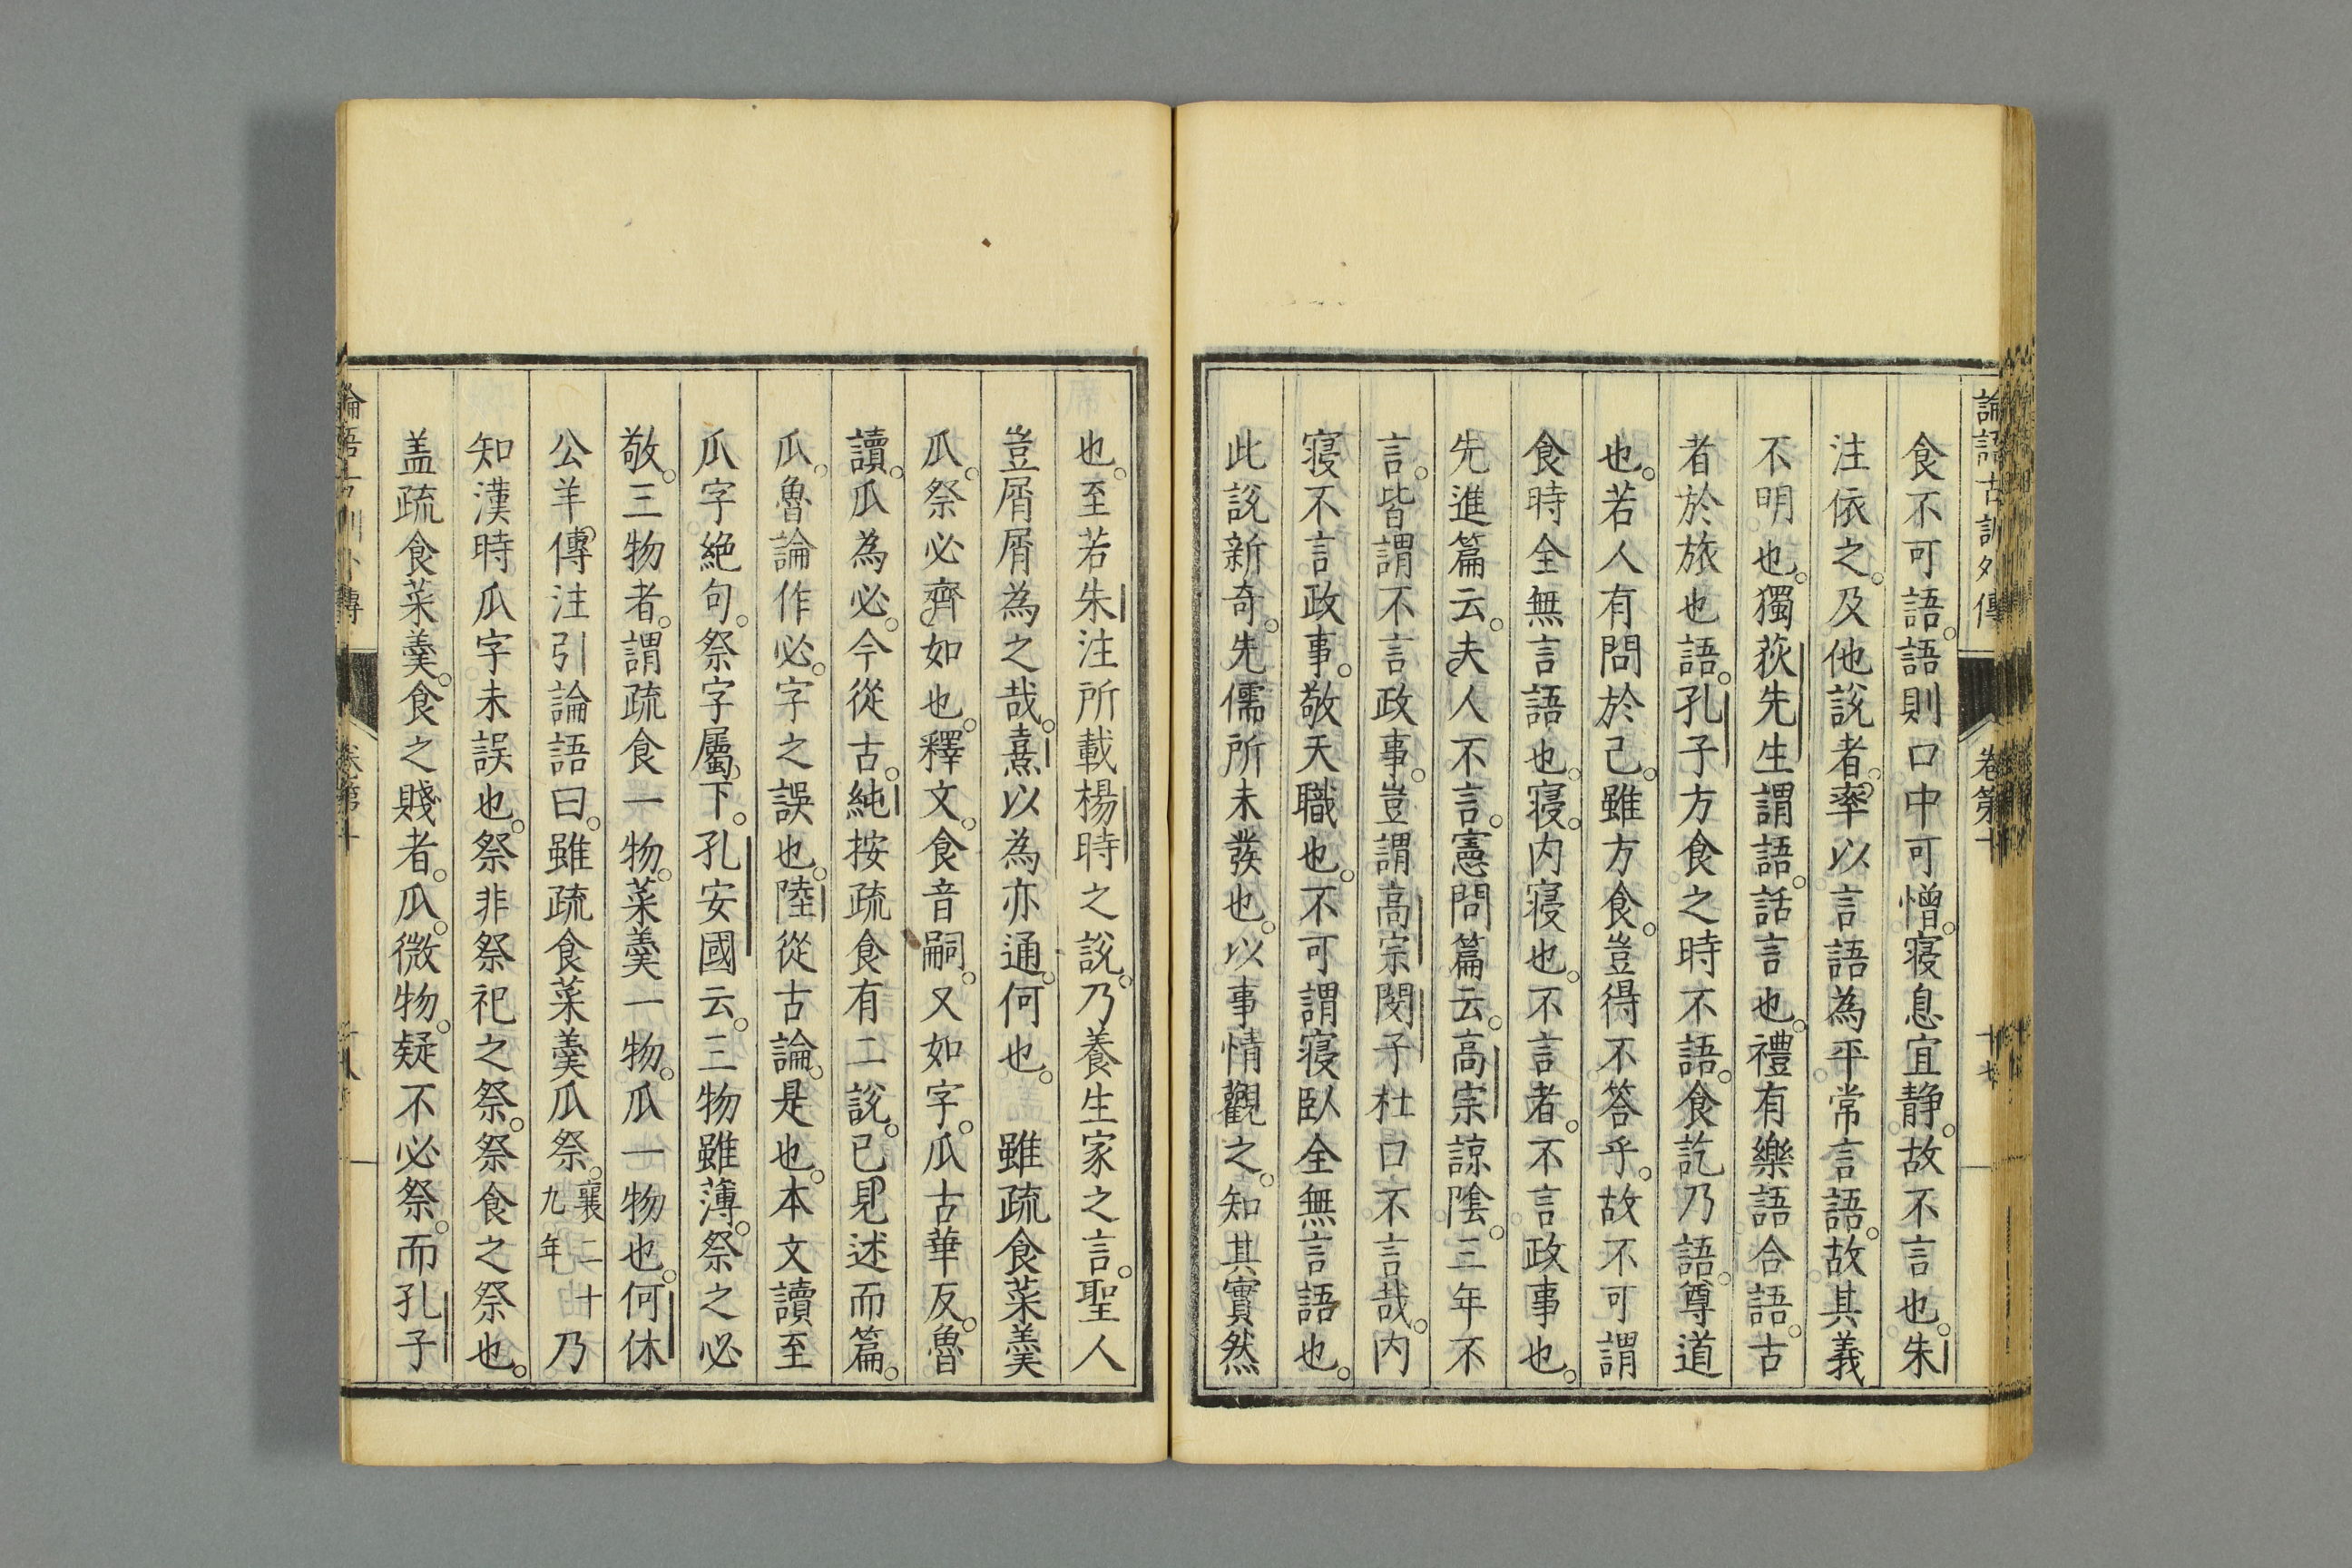 論語古訓外傳
卷第十
十七
食不可語。語則口中可憎。寢息宜靜。故不言也。朱
注依之。及他說者。率以言語為平常言語。故其義
不明也。獨荻先生謂語。話言也。禮有樂語合語。古
者於旅也語。孔子方食之時不語。食訖乃語。尊道
也。若人有問於己。雖方食。豈得不答乎。故不可謂
食時全無言語也。寢。内寢也。不言者。不言政事也。
先進篇云。夫人不言。憲問篇云。高宗諒陰。三年不
言。皆謂不言政事。豈謂高宗閔子杜口不言哉。内
寢不言政事。敬天職也。不可謂寢臥全無言語也。
此說新奇。先儒所未發也。以事情觀之。知其實然
也。至若朱注所載楊時之說。乃養生家之言。聖人
豈屑屑為之哉。熹以為亦通。何也。　雖疏食菜羹
瓜。祭必齊如也。釋文。食音嗣。又如字。瓜古華反。魯
讀。瓜為必。今從古。純按疏食有二說。已見述而篇。
瓜。魯論作必。字之誤也。陸從古論。是也。本文讀至
瓜字絕句。祭字屬下。孔安國云。三物雖薄。祭之必
敬。三物者。謂疏食一物。菜羹一物。瓜一物也。何休
公羊傳注引論語曰。雖疏食菜羹瓜祭。襄二十九年乃
知漢時瓜字未誤也。祭非祭祀之祭。祭食之祭也。
盖疏食菜羹。食之賤者。瓜。微物。疑不必祭。而孔子
論語古訓外傳
卷第十